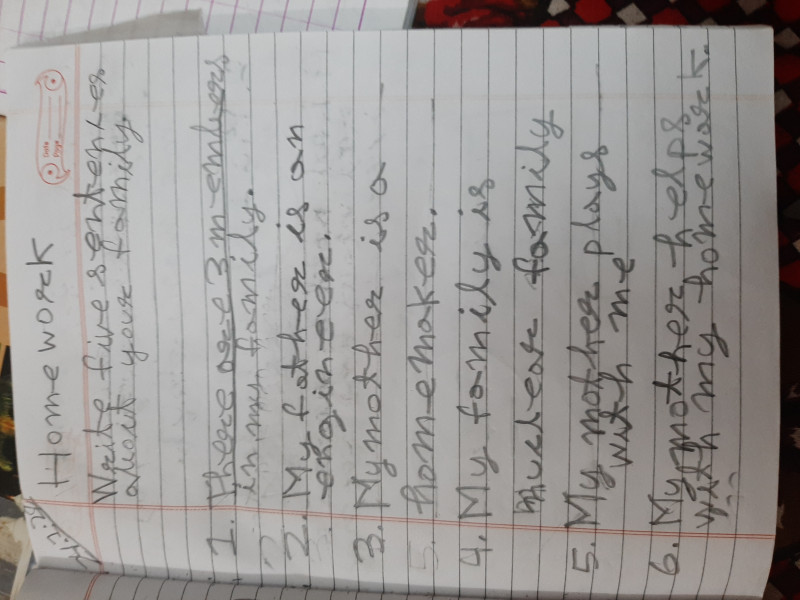 Homework
Date
Page
Write five sentences
about your family.
1. There are 3 members
in my family.
2. My father is an
engineer.
3. My mother is a
homemaker.
4. My family is
nuclear family
5. My mother plays
with me
6. My mother helps
with my homework.